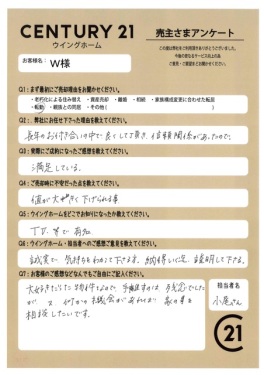 CENTURY 21
ウイングホーム
売主さまアンケート
お客様名： W様
Q1：まず最初にご売却理由をお聞かせください。
・老朽化による住み替え ・資産売却 ・離婚 ・相続 ・家族構成変更に合わせた転居
・転勤 ・親族との同居 ・その他(　　　)
Q2：、弊社にお任せ下さった理由を教えてください。
長年のお付き合いの中で良くして頂き、信頼関係があったので、
Q3：実際にご成約になったご感想を教えてください。
満足している。
Q4：ご売却時に不安だった点を教えてください。
値が大きく下げられる事
Q5：ウイングホームをどこでお知りになったか教えてください。
TV 等で 有知
Q6：ウイングホーム・担当者へのご感想ご意見を教えてください。
誠実で、気持ちをわかって下さる。納得いく迄、説明して下さる。
Q7：お客様のご感想などなんでもご自由にご記入ください。
大好きだった物件なので、手離すのは残念でした
が、又 何かの機会があれば 家の事を
相談したいです。
担当者名
小尾さん
C21